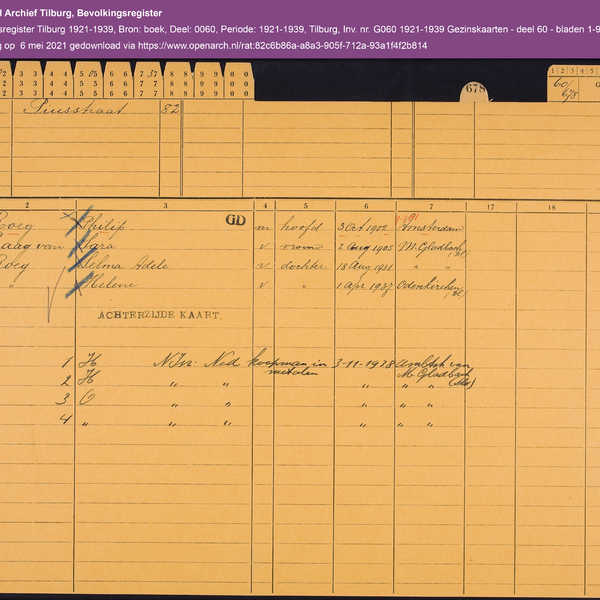 Archief Tilburg, Bevolkingsregister
register Tilburg 1921-1939, Bron: boek, Deel: 0060, Periode: 1921-1939, Tilburg, Inv. nr. G060 1921-1939 Gezinskaarten - deel 60 - bladen 1-9
op 6 mei 2021 gedownload via https://www.openarch.nl/rat:82c6b86a-a8a3-905f-712a-93a1f4f2b814
678
60/678
Piusstraat 82
2 3 4 5 6 7 17 18
GD
Philip m hoofd 3 Oct 1902 Amsterdam
van Sara v vrouw 2 Aug 1905 M. Gladbach
Adele v dochter 18 Aug 1931 " "
" Helene v " 1 Apr 1937 Odenkirchen
ACHTERZIJDE KAART.
1 H N.Isr. Ned koopman in metalen 3-11-1938 van M. Gladbach
2 H " " " " "
3 O " " " " "
4 " " " " " "